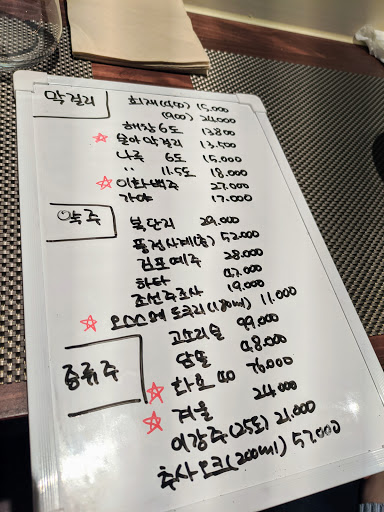 막걸리
희재(500) 15,000
(900) 24,000
해창 6도 13,800
☆ 술아막걸리 13,500
나루 6도 15,000
〃 11.5도 18,000
☆ 이화백주 27,000
가야 17,000
약주
복단지 29,000
풍정사계(춘) 52,000
김포예주 28,000
하타 47,000
조선주조사 19,000
☆ 오스스메 도쿠리(180ml) 11,000
증류주
고소리술 99,000
담솔 48,000
☆ 화요 40 76,000
☆ 겨울 24,000
이강주(25도) 21,000
추사 오크(200ml) 57,000